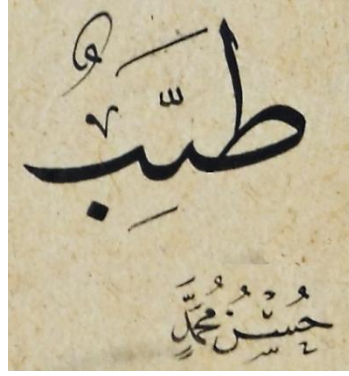 طَيِّبُ
حُسْنُ مُحَمَّدٍ